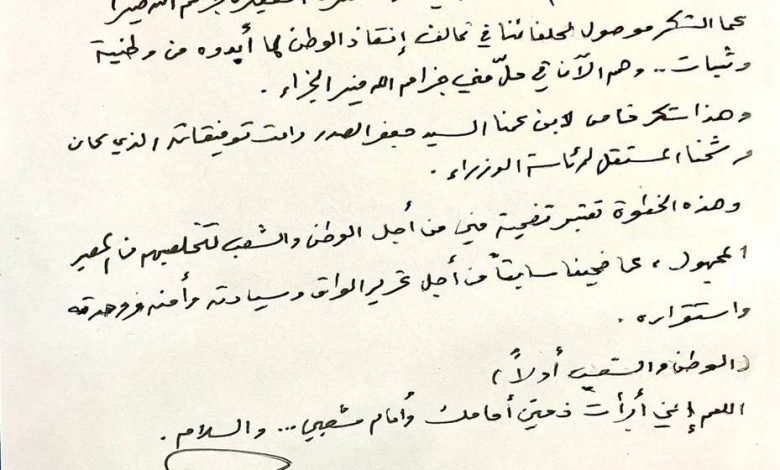 جزاهم الله خيراً
كما الشكر موصول لحلفائنا في تحالف إنقاذ الوطن لما أبدوه من وطنية
وثبات .. وهم الآن في حلّ مني جزاهم الله خير الجزاء .
وهذا شكر خاص لابن عمنا السيد جعفر الصدر دامت توفيقاته الذي كان
مرشحنا المستقل لرئاسة الوزراء .
وهذه الخطوة تعتبر تضحية مني من أجل الوطن والشعب لتخليصهم من المصير
المجهول ، كما ضحينا سابقاً من أجل تحرير العراق وسيادته وأمنه ووحدته
واستقراره .
(الوطن والشعب أولاً)
اللهم إني أبرأت ذمتي أمامك وأمام شعبي ... والسلام .